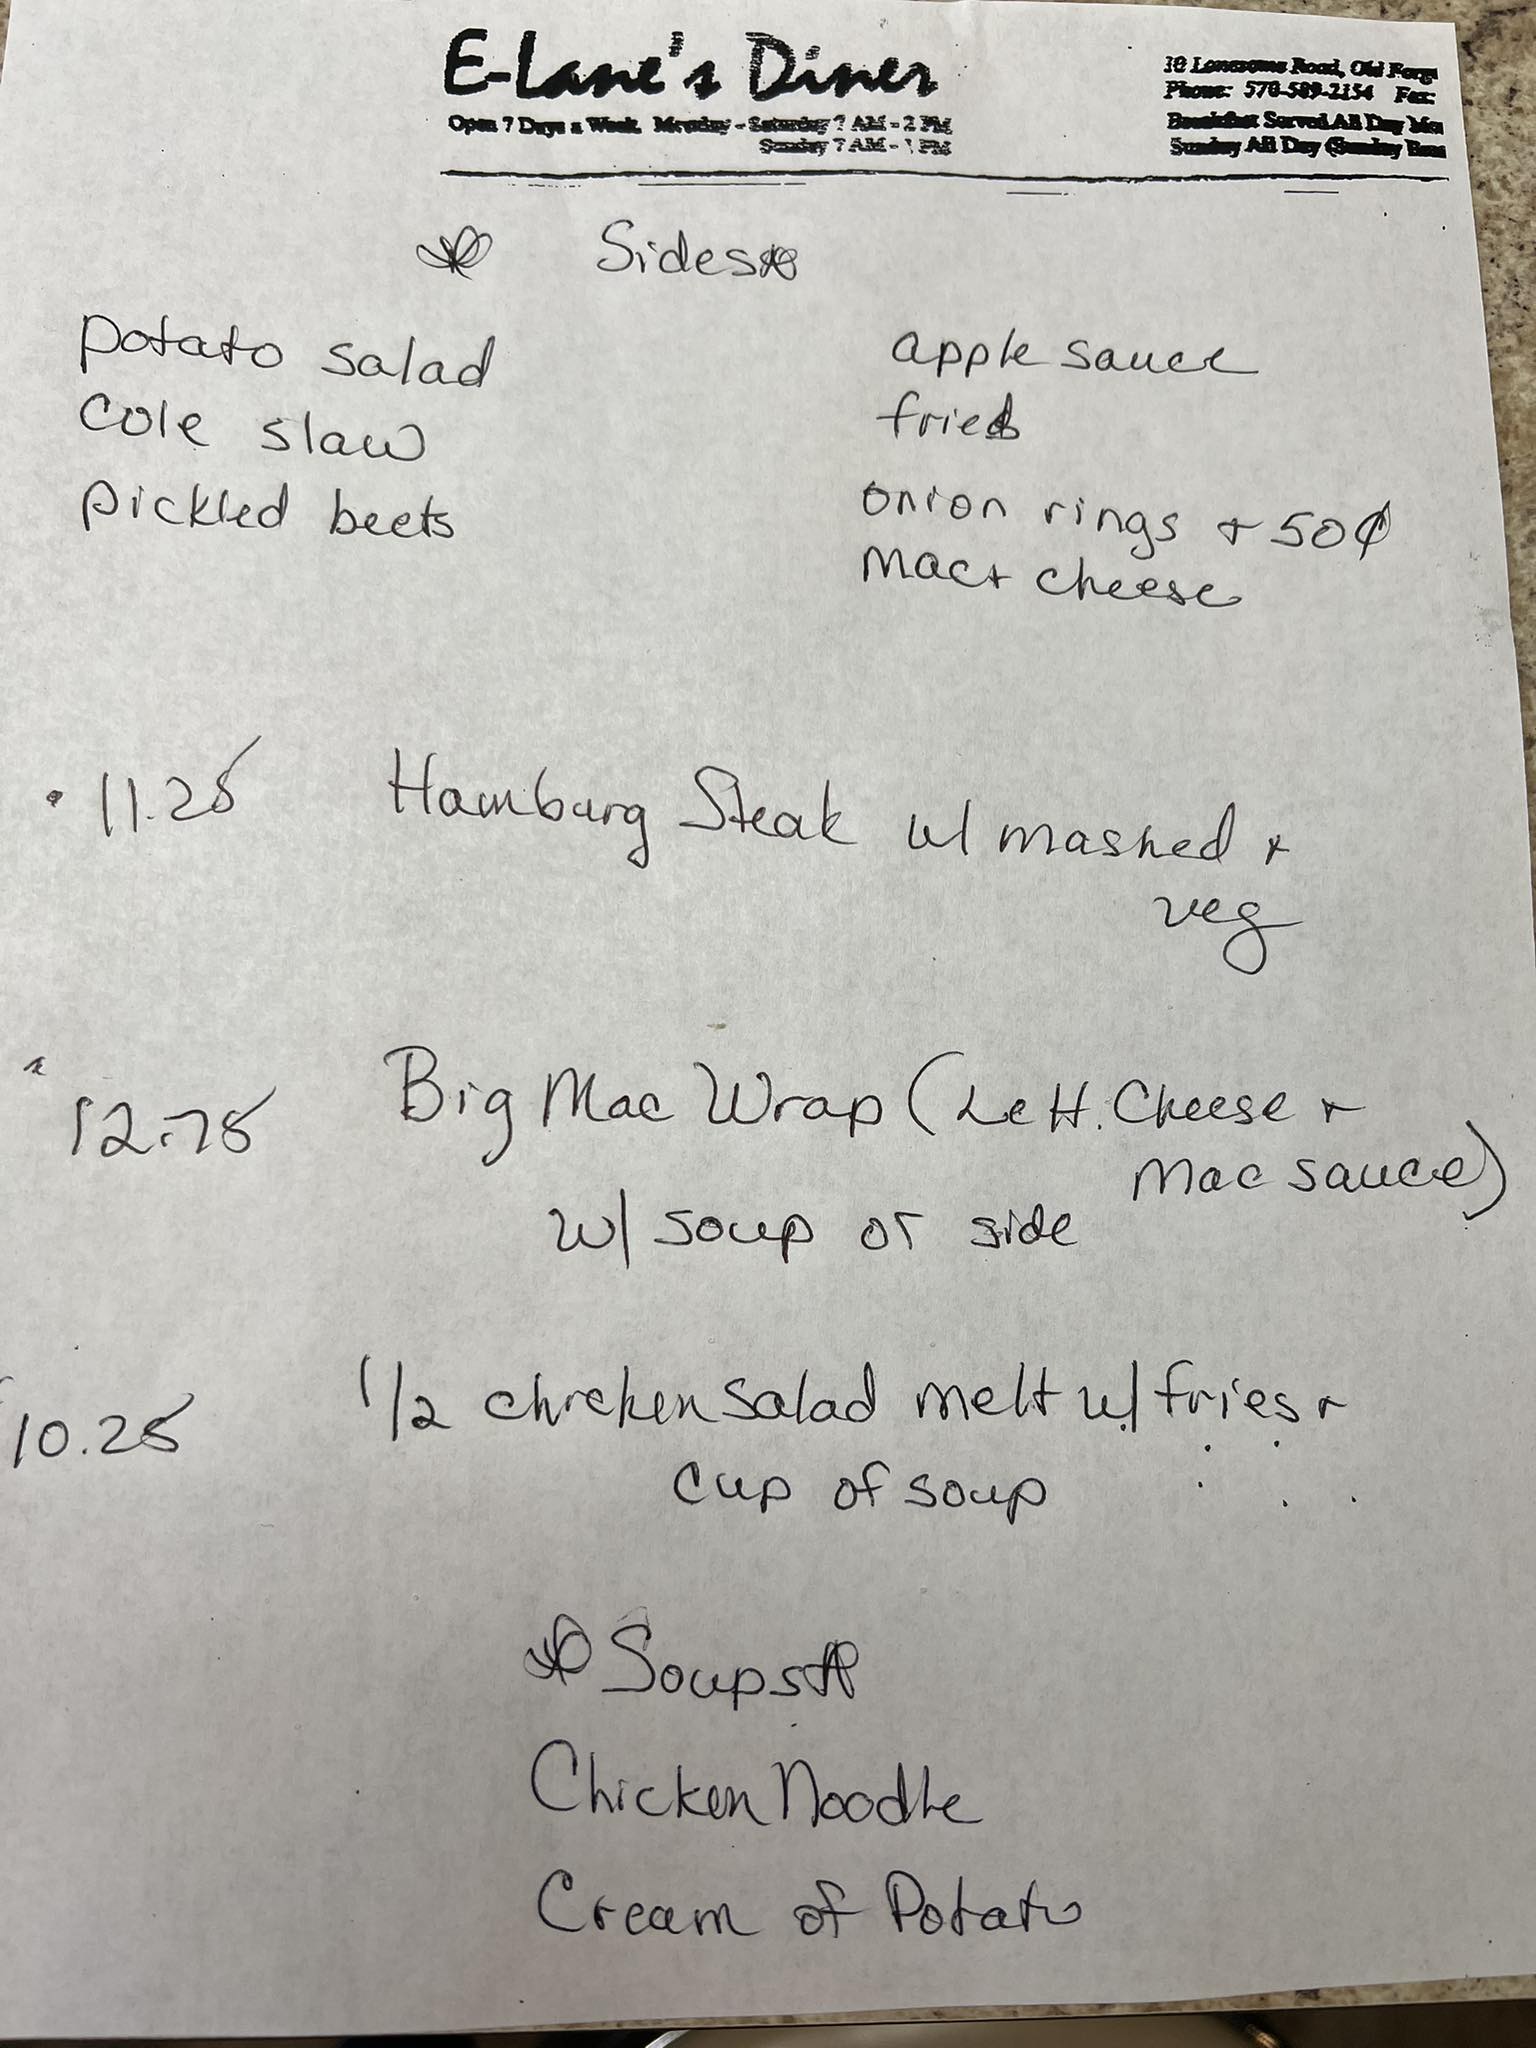 E-Lane's Diner
10 Lonesome Road, Old Forge
Phone: 570-589-2154 Fax:
Open 7 Days a Week. Monday - Saturday 7 AM - 2 PM
Sunday 7 AM - 1 PM
Breakfast Served All Day
Sunday All Day (Sunday
Sides
potato salad
Cole slaw
pickled beets
apple sauce
fries
onion rings + 50¢
mac + cheese
11.25 Hamburg Steak w/ mashed +
veg
12.75 Big Mac Wrap (Lett. Cheese +
Mac sauce)
w/ soup or side
10.25 1/2 chicken salad melt w/ fries +
cup of soup
Soups
Chicken Noodle
Cream of Potato